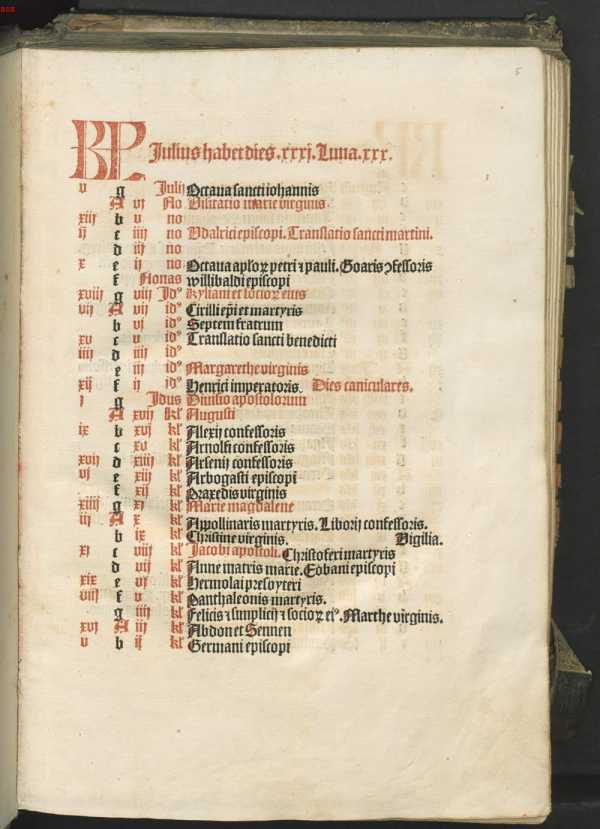 5
KL Julius habet dies .xxxj. Luna .xxx.
v g Julij Octaua sancti iohannis
A vj No Visitatio marie virginis.
xiij b v no
ij c iiij no Vdalrici episcopi. Translatio sancti martini.
d iij no
x e ij no Octaua aploꝝ petri ⁊ pauli. Goaris ꝯfessoris
f Nonas willibaldi episcopi
xviij g viij Jdꝰ Kyliani et socioꝝ eius
vij A vij idꝰ Cirilli ep̄i et martyris
b vj idꝰ Septem fratrum
xv c v idꝰ Translatio sancti benedicti
iiij d iiij idꝰ
e iij idꝰ Margarethe virginis
xij f ij idꝰ Henrici imperatoris. Dies caniculares.
j g Jdus Diuisio apostolorum
A xvij kl' Augusti
ix b xvj kl' Alexij confessoris
c xv kl' Arnolfi confessoris
xvij d xiiij kl' Arsenij confessoris
vj e xiij kl' Arbogasti episcopi
f xij kl' Praxedis virginis
xiiij g xj kl' Marie magdalene
iij A x kl' Appollinaris martyris. Liborij confessoris.
b ix kl' Christine virginis. Vigilia.
xj c viij kl' Jacobi apostoli. Christoferi martyris
d vij kl' Anne matris marie. Eobani episcopi
xix e vj kl' Hermolai presbyteri
viij f v kl' Panthaleonis martyris.
g iiij kl' Felicis ⁊ simplicij ⁊ socioꝝ eiꝰ. Marthe virginis.
xvj A iij kl' Abdon et Sennen
v b ij kl' Germani episcopi